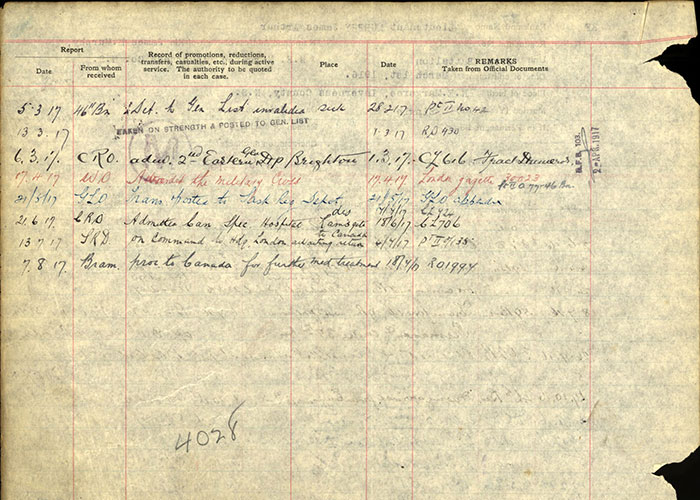 Report
Date
From whom received
Record of promotions, reductions, transfers, casualties, etc., during active service. The authority to be quoted in each case.
Place
Date
REMARKS
Taken from Official Documents
5 3 17 46th Bn to Gen List invalided sick 28 2 17 Pt II No 42
13 3 17 TAKEN ON STRENGTH & POSTED TO GEN. LIST 1 3 17 RO 930
6.3.17. CRO adm. 2nd Eastern Gen Brighton 1.3.17 CL 616 Fract Humerus.
17 4 17 WO Awarded the Military Cross 17.4.17 Lond. gazette 30023
46 Bn
21/5/17 GLO Trans. Posted to Sask Reg Depot, 21/5/17 GLO
dis 7/7/17
21 6 17 CRO Admitted Can Spec. Hospital Ramsgate 18/6/17 CL 706
13 7 17 SRD on Command to Hdq. London awaiting return to Canada 4/7/17 Pt II
7. 8 17 Bram. proc to Canada for further med treatment RO 1994
B.F.B. 103.
2-APR.1917
4028